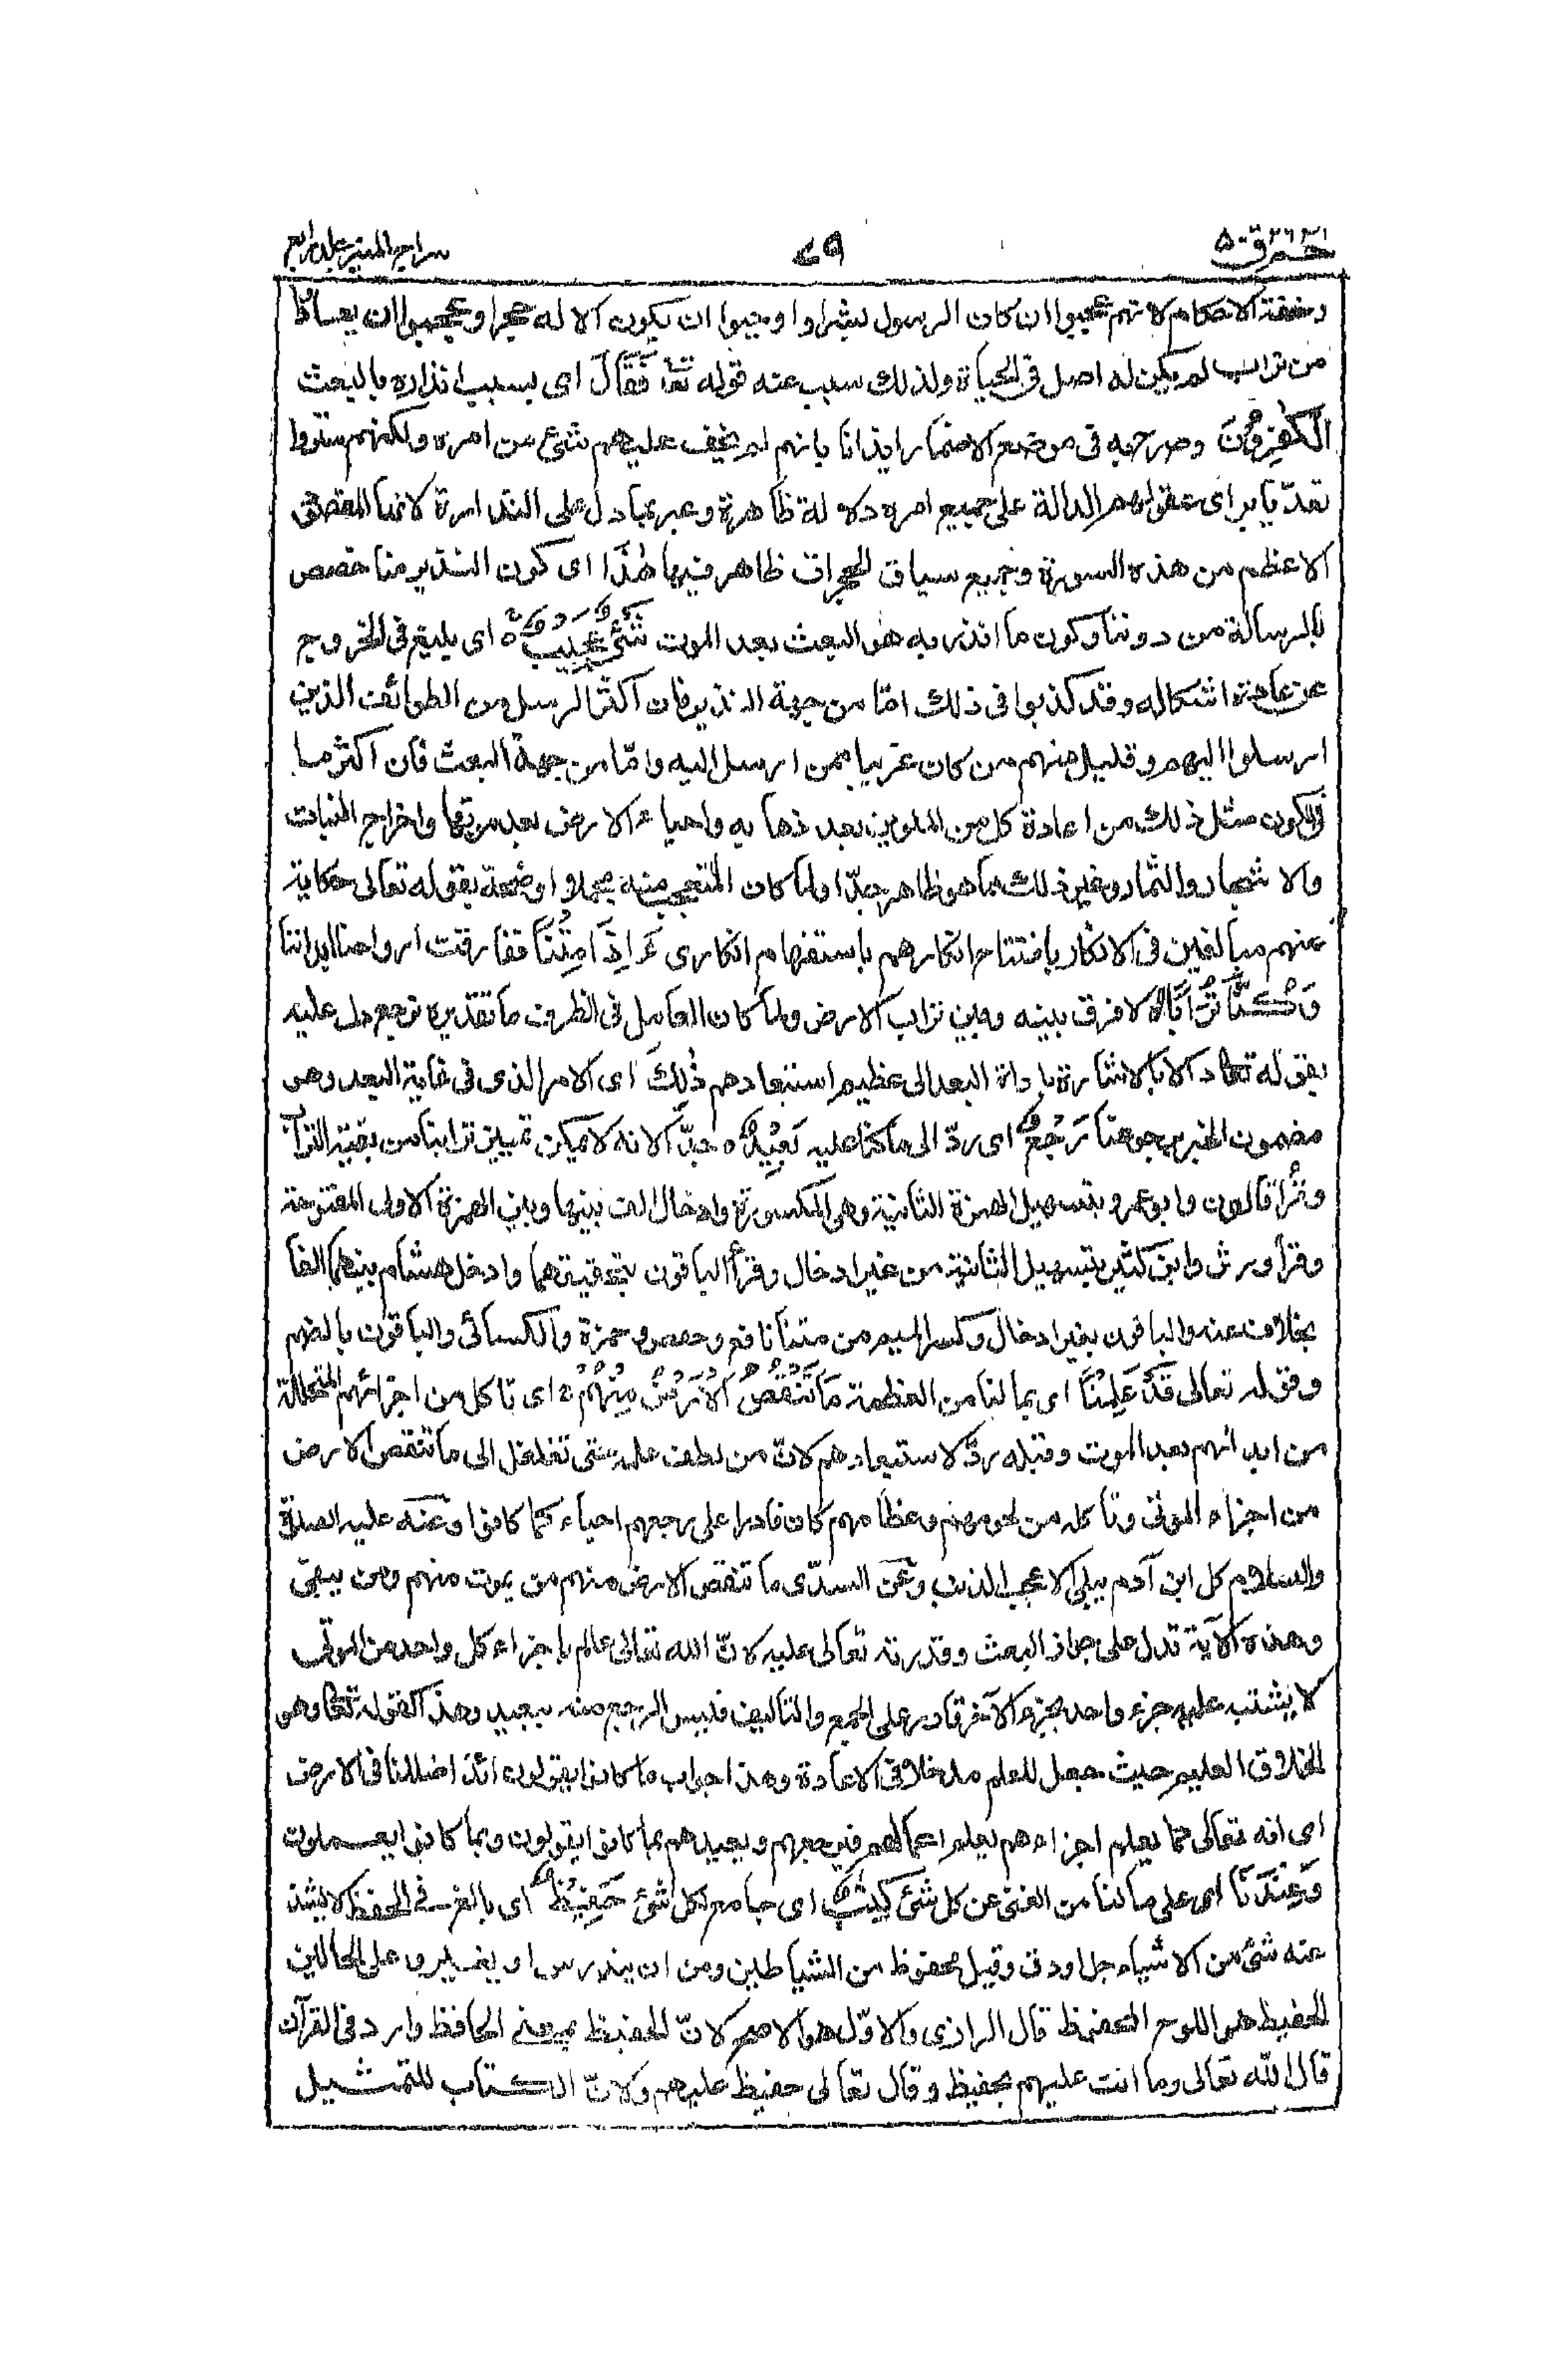 حٰمٓ ٢٦ قٓ ٥٠ ٧٩ سراج المنير جلد رابع
وخفة الاحكام لانهم عجبوا ان كان الرسول بشرا واوجبوا ان يكون الاله حجرا وعجبوا ان يعادوا
من تراب لم يكن له اصل فى الحياة ولذلك سبب عنه قوله تعا فَقَالَ اى بسبب انذاره بالبعث
الْكٰفِرُوْنَ وصرح به فى موضع الاضمار ايذانا بانهم لم يخف عليهم شئ من امره ولكنهم ستروا
تعدّيا براى عقولهم الدالة على جميع امره دلالة ظاهرة وعبر بما دل على النذارة لانها المقصق
الاعظم من هذه السورة وجميع سياق الحجرات ظاهر فيها هٰذَا اى كون النذير منا خصص
بالرسالة من دوننا وكون ما انذر به هو البعث بعد الموت شَيْءٌ عَجِيْبٌ ه اى بليغ فى الخروج
عن عادة اشكاله وقد كذبوا فى ذلك امّا من جهة النذير فان اكثر الرسل من الطوائف الذين
ارسلوا اليهم وقليل منهم من كان غريبا ممن ارسل اليه وامّا من جهة البعث فان اكثر ما
فى الكون مثل ذلك من اعادة كل من الملوين بعد ذهابه واحياء الارض بعد موتها واخراج النبات
والاشجار والثمار وغير ذلك مما هو ظاهر جدّا ولما كان المتعجب منه مجملا اوضحه بقوله تعالى حكاية
عنهم مبالغين فى الانكار بافتتاح انكارهم باستفهام انكارى ءَاِذَا مِتْنَا ففارقت ارواحنا ابداننا
وَكُنَّا تُرَابًا لا فرق بينه وبين تراب الارض ولما كان العامل فى الظرف ما تقديره نرجع دل عليه
بقوله تعا دالا بالاشارة باداة البعد الى عظيم استبعادهم ذٰلِكَ اى الامر الذى فى غاية البعد وهو
مضمون الخبر برجوعنا رَجْعٌ اى ردّ الى ما كنا عليه بَعِيْدٌ ه جدّا لانه لا يمكن تمييز ترابنا من بقية التراب
وقرأ قالون وابو عمرو بتسهيل الهمزة الثانية وهى المكسورة وادخال الف بينها وبين الهمزة الاولى المفتوحة
وقرأ ورش وابن كثير بتسهيل الثانية من غير ادخال وقرأ الباقون بتحقيقهما وادخل هشام بينهما الفا
بخلاف عنه والباقون بغير ادخال وكسر الميم من متنا نافع وحفص وحمزة والكسائى والباقون بالضم
وقوله تعالى قَدْ عَلِمْنَا اى بما لنا من العظمة مَا تَنْقُصُ الْاَرْضُ مِنْهُمْ اى تاكل من اجزائهم المتحللة
من ابدانهم بعد الموت وقبله ردّ لاستبعادهم لانّ من لطف علمه حتى تغلغل الى ما تنقص الارض
من اجزاء الموتى وتاكله من لحومهم وعظامهم كان قادرا على رجعهم احياء كما كانوا وعنه عليه الصلاة
والسلام كل ابن آدم يبلى الا عجب الذنب وعن السدّى ما تنقص الارض منهم من يموت منهم ومن يبقى
وهذه الآية تدل على جواز البعث وقدرته تعالى عليه لانّ الله تعالى عالم باجزاء كل واحد من الموتى
لا يشتبه عليه جزء واحد بجزء الآخر قادر على الجمع والتاليف فليس الرجع منه ببعيد وهذا كقوله تعا وهو
الخلاق العليم حيث جعل للعلم مدخلا فى الاعادة وهذا جواب ما كانوا يقولون ائذا ضللنا فى الارض
اى انه تعالى كما يعلم اجزاءهم يعلم اعمالهم فيرجعهم ويعيدهم بما كانوا يقولون وبما كانوا يعملون
وَعِنْدَنَا اى على ما لنا من الغنى عن كل شئ كِتٰبٌ اى جامع لكل شئ حَفِيْظٌ اى بالغ فى الحفظ لا يشذ
عنه شئ من الاشياء جل او دق وقيل محفوظ من الشياطين ومن ان يندرس او يغير وعلى الحالين
الحفيظ هو اللوح المحفوظ قال الرازى والاوّل هو الاصح لانّ الحفيظ بمعنى الحافظ وارد فى القرآن
قال الله تعالى وما انت عليهم بحفيظ وقال تعالى حفيظ عليهم ولانّ الكتاب للتمثيل